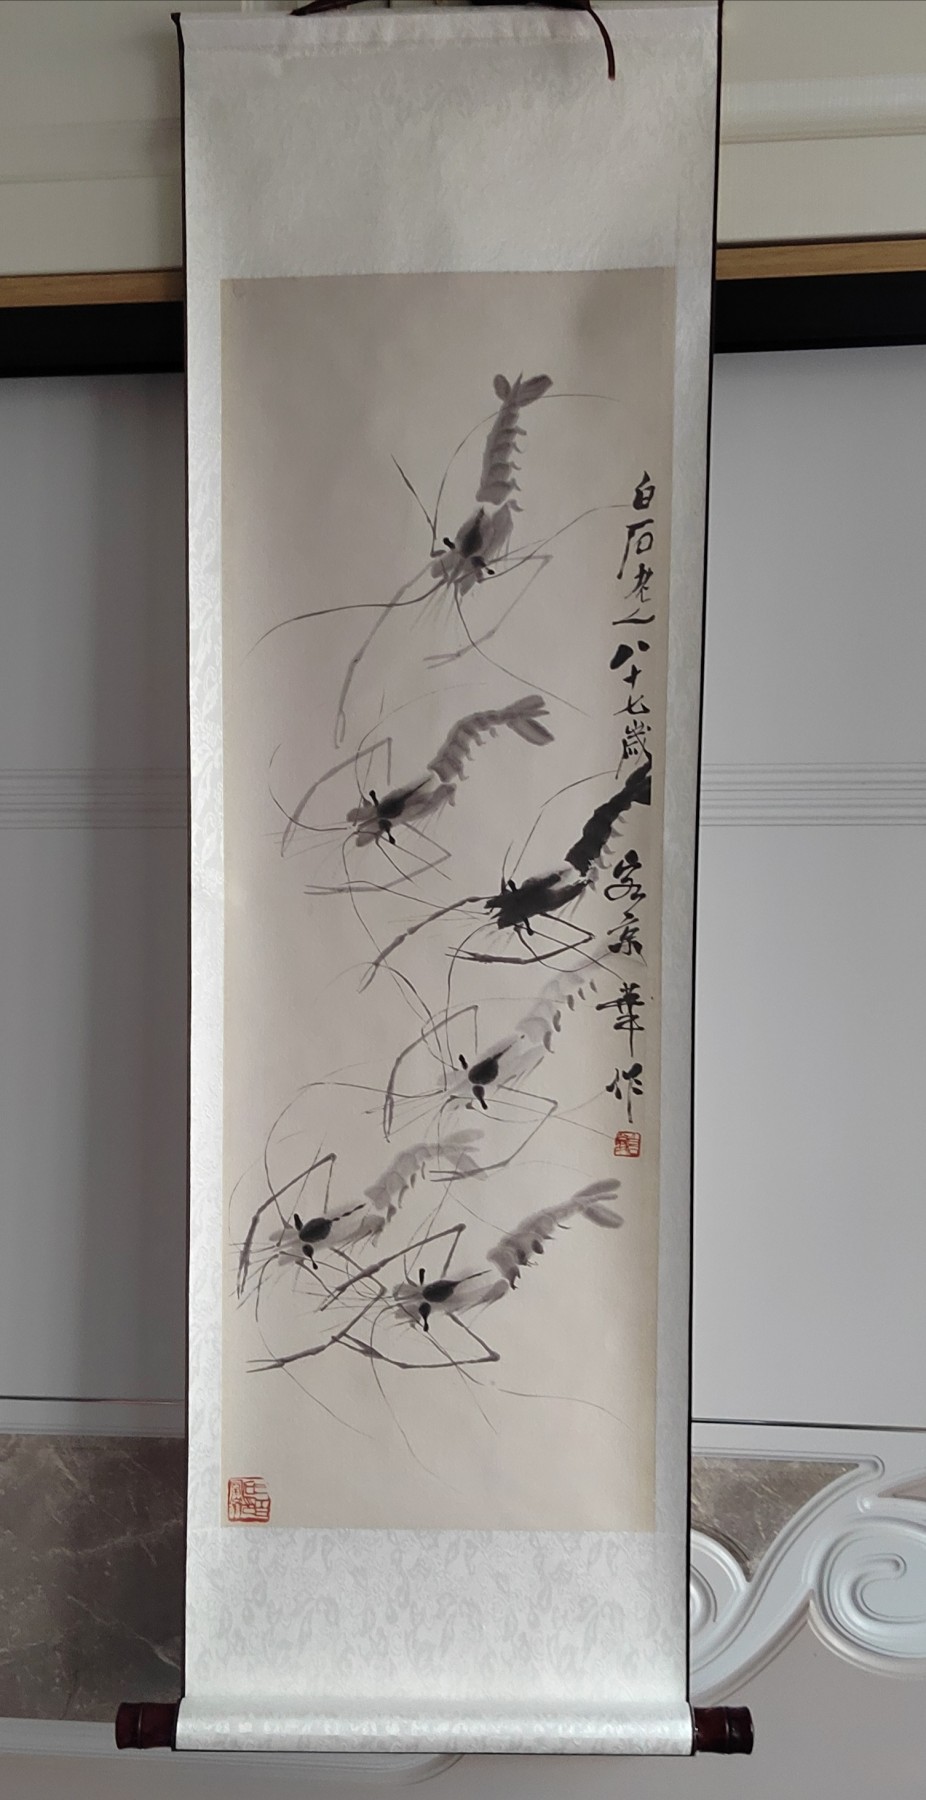 白石老人八十七歲客京華作